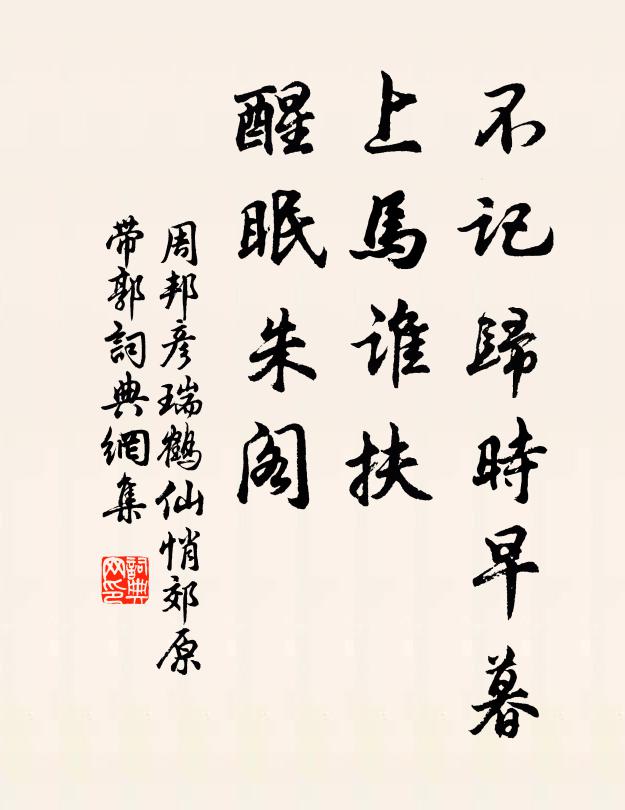 不记歸時早暮
上馬谁扶
醒眠朱阁
周邦彦瑞鶴仙悄郊原
带郭詞典網集
詞典网印